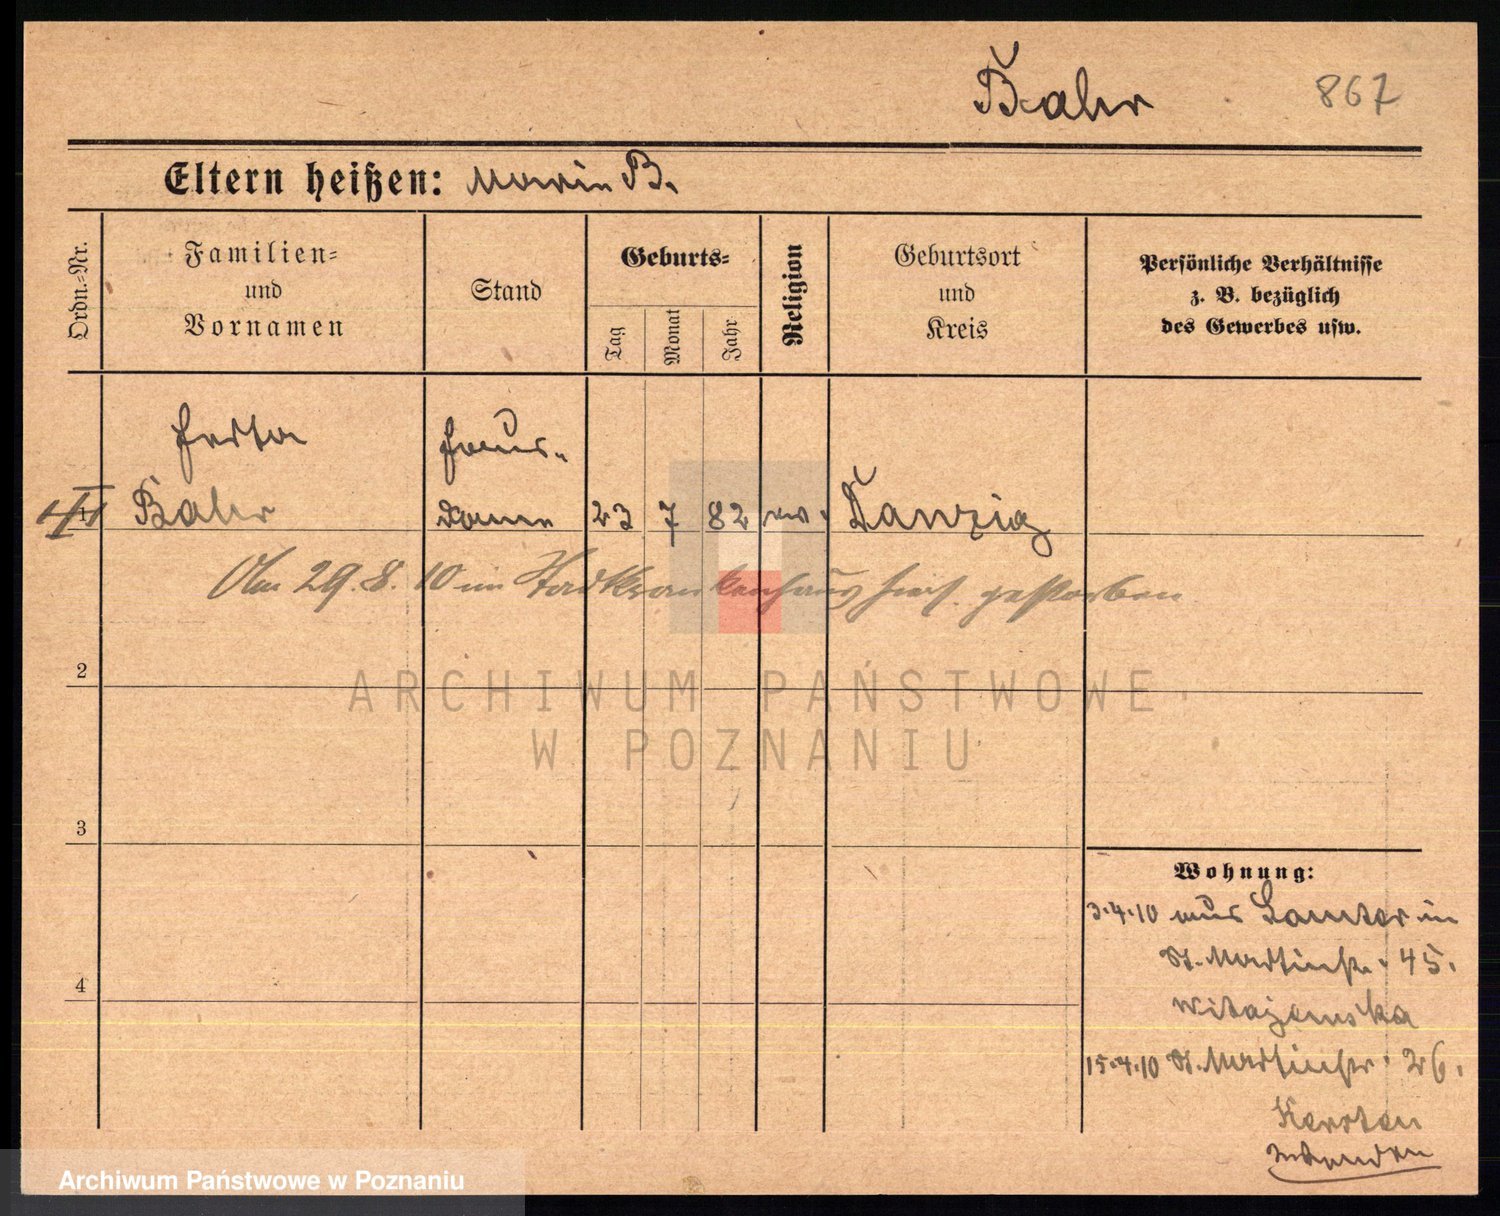 Bahr 867
Eltern heißen: Marie B.
Ordn.=Nr.
Familien=
und
Vornamen
Stand
Geburts=
Tag
Monat
Jahr
Religion
Geburtsort
und
Kreis
Persönliche Verhältnisse
z. B. bezüglich
des Gewerbes usw.
Haus-
1 Bahr dame 23 7 82 ev. Danzig
Am 29.8.10 im Stadtkrankenhaus hies. gestorben
2
3
4
Wohnung:
3.4.10 aus Samter in
St. Martinstr. 45.
Witajewska
15.4.10 St. Martinstr. 26.
Kersten
ARCHIWUM PAŃSTWOWE
W POZNANIU
Archiwum Państwowe w Poznaniu